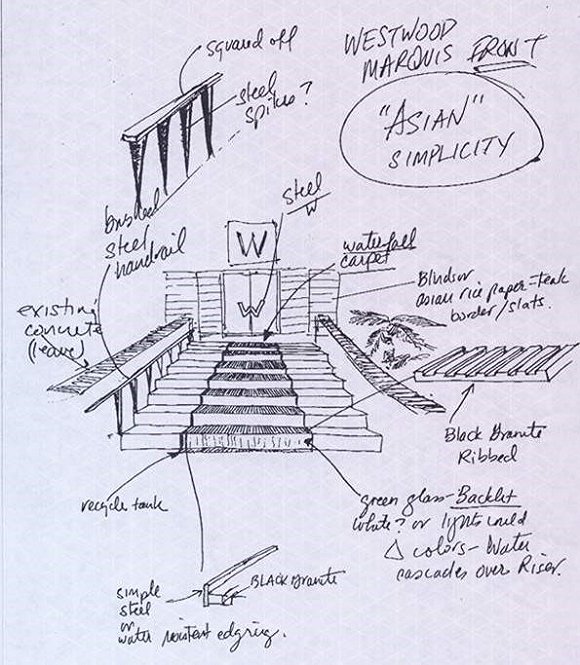 WESTWOOD
MARQUIS FRONT
"ASIAN"
SIMPLICITY
squared off
steel
spikes?
steel
W
brushed
steel
handrail
W
W
waterfall
carpet
Blinds or
asian rice paper - teak
border/slats.
existing
concrete
(leave)
Black Granite
Ribbed
recycle tank
green glass - Backlit
white? or lights could
Δ colors - Water
cascades over Riser.
simple
steel
or
water resistent edging.
BLACK Granite